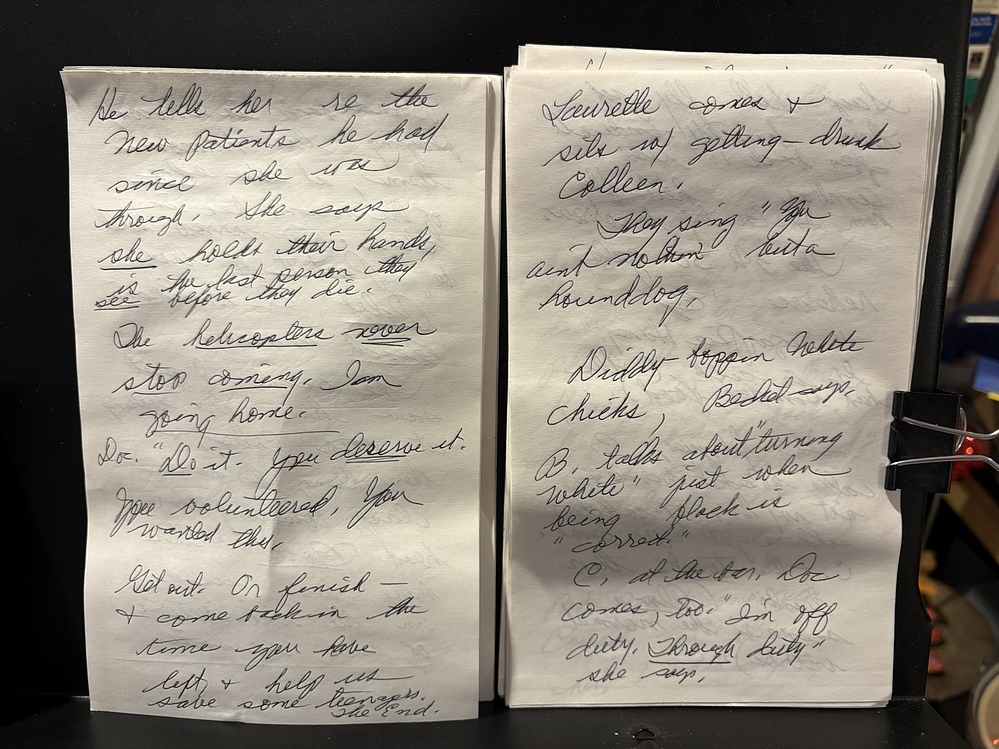 He tells her re the
new patients he had
since she was
through. She says
she holds their hands,
is the last person they
see before they die.
The helicopters never
stop coming. I am
going home.
Doc. "Do it. You deserve it.
You volunteered. You
wanted this.
Get out. Or finish —
& come back in the
time you have
left, & help us
save some teenagers.
The End.
Laurette comes &
sits w/ getting-drunk
Colleen.
They sing "You
aint nothin' but a
hounddog,
Diddy-boppin white
chicks, Beckel says.
B. talks about "turning
white" just when
being black is
"correct."
C. at the bar. Doc
comes, too. "I'm off
duty. Through duty"
she says.